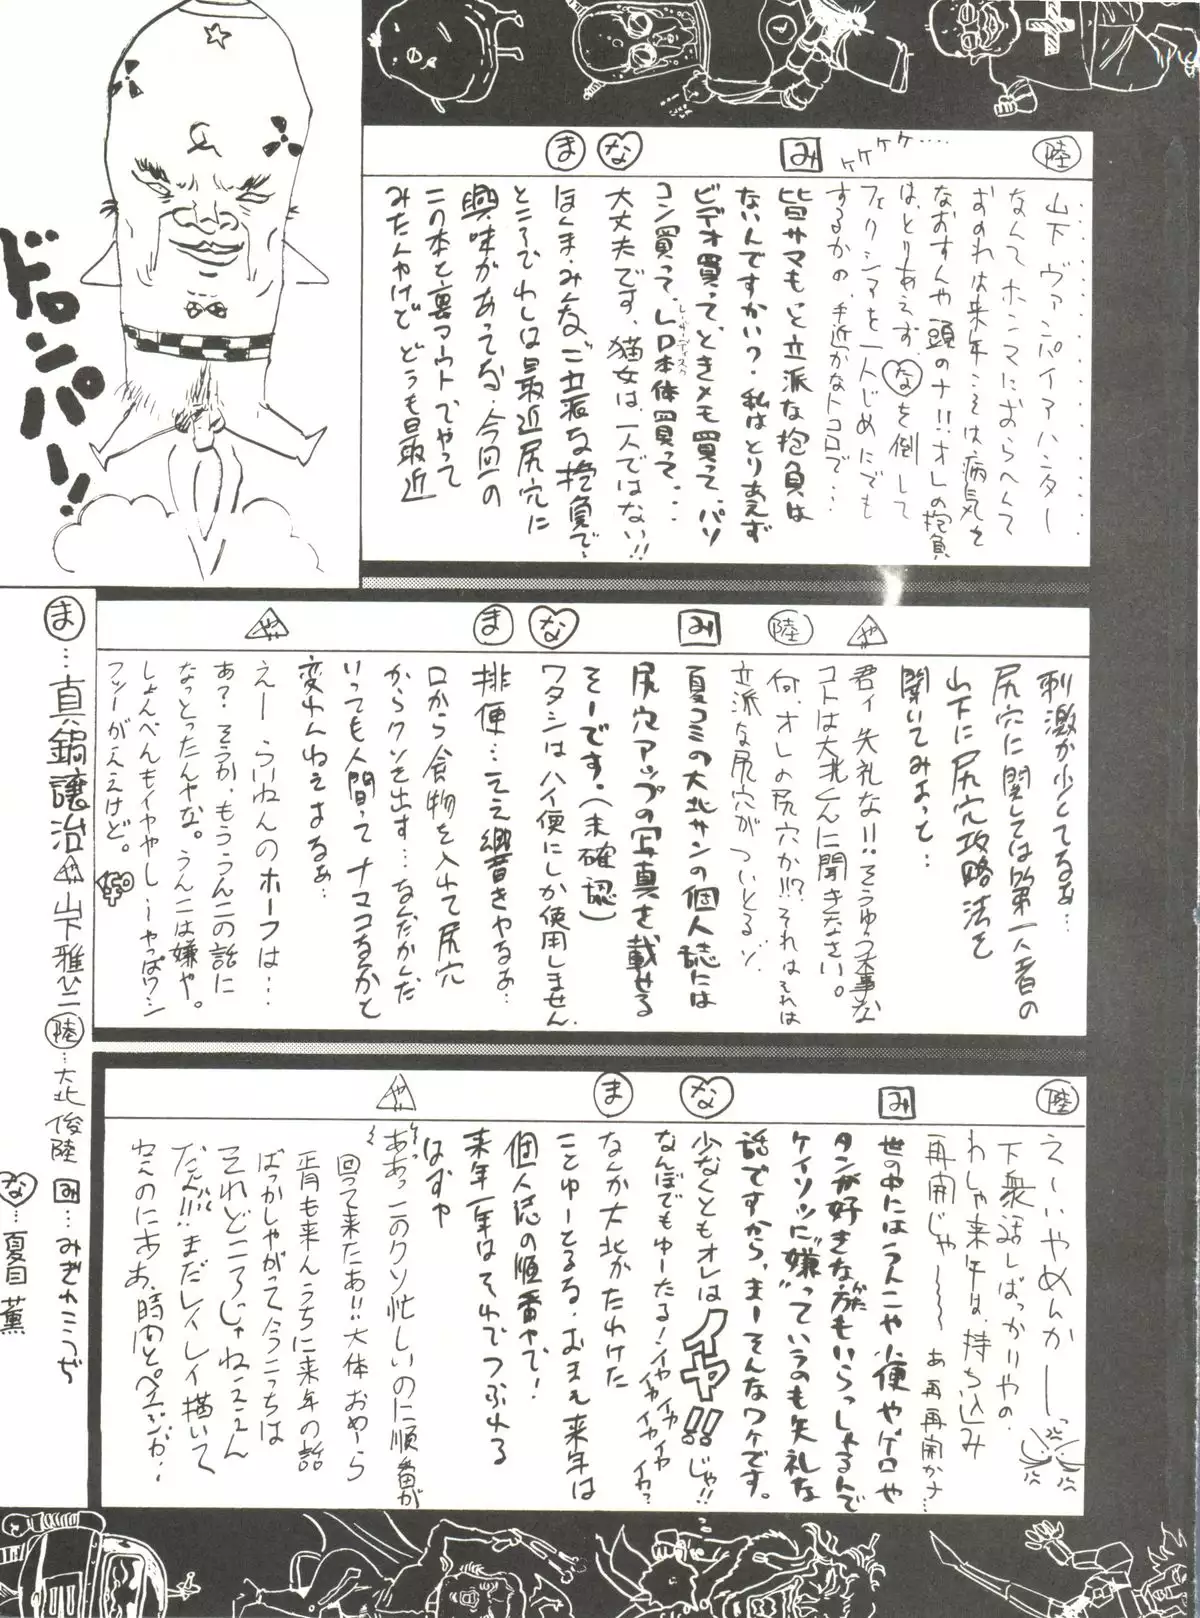 陸
山下ヴァンパイアハンター
なんてホンマにおらへくて
おのれは来年こそは病気を
なおすんや頭のナ!!オレの抱負
は、とりあえずなを倒して
フェリシアを一人じめにでも
するかの、手近かなトコロで…
ケケケケ….
み
皆サマもっと立派な抱負は
ないんですかい?私はとりあえず
ビデオ買って、ときメモ買って、パソ
コン買って、LD本体買って…
レーザーディスク
な
大丈夫です、猫女は、一人ではない!!
ま
ほくま・みんなご立派な抱負で、
ところでわしは最近尻穴に
興味があってな、今回の
この本と裏マウトでやって
みたんやけどどうも最近
ドロンパー!
刺激が少くてなぁ…
尻穴に関しては第一人者の
山下に尻穴攻略法を
聞いてみよっと…
や
君ィ失礼な!!そうゆう大事な
コトは大北くんに聞きなさい。
陸
何、オレの尻穴か!!?それはそれは
立派な尻穴がついとるゾ、
み
夏コミの大北サンの個人誌には
尻穴アップの写真を載せる
そーです。(未確認)
な
ワタシはハイ便にしか使用しません、
ま
排便…ええ響きやなぁ…
口から食物を入れて尻穴
からクソを出す…なんだかんだ
いっても人間ってナマコなんかと
変わんねえなぁ…
や
えーらいねんのホーフは…
あ?そうか、もううんこの話に
なっとったんやな。うんこは嫌や。
しょんべんもイヤやしーやっぱワシ
フッーがええけど。
陸
えーいやめんかーっ
下衆話しばっかりやの
わしゃ来年は、持ち込み
再開じゃ〜〜〜あ、再再開かナ…
み
世の中にはうんこや小便やゲロや
タンが好きな方もいらっしゃるんで
ケイソツに"嫌"っていうのも失礼な
話ですから、まーそんなワケです。
な
少なくともオレはイヤ!!じゃ!!
なんぼでもゆーたる!イヤイヤイヤイヤイヤイヤっ
ま
なんか大北がたわけた
ことゆーとるな、おまえ来年は
個人誌の順番やで!
来年一年はそれでつぶれる
はずや
や
ああっこのクソ忙しいのに順番が
回って来たぁ!!大体おめーら
正月も来んうちに来年の話
ばっかしゃがって今こっちは
それどころじゃねええん
だよ!!まだレイレイ描いて
ねえのにああ、時間とペエジが…
ま…真鍋譲治 や山下雅一 陸…大北俊陸 み…みぎわこうぢ
な…夏目薫